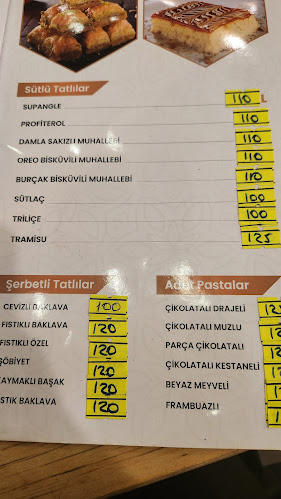 Sütlü Tatlılar
SUPANGLE 110 L
PROFİTEROL 110
DAMLA SAKIZLI MUHALLEBİ 110
OREO BİSKÜVİLİ MUHALLEBİ 110
BURÇAK BİSKÜVİLİ MUHALLEBİ 110
SÜTLAÇ 100
TRİLİÇE 100
TRAMİSU 125
Şerbetli Tatlılar
CEVİZLİ BAKLAVA 100
FISTIKLI BAKLAVA 120
FISTIKLI ÖZEL 120
ŞÖBİYET 120
KAYMAKLI BAŞAK 120
STIK BAKLAVA 120
Adet Pastalar
ÇİKOLATALI DRAJELİ
ÇİKOLATALI MUZLU
PARÇA ÇİKOLATALI
ÇİKOLATALI KESTANELİ
BEYAZ MEYVELİ
FRAMBUAZLI